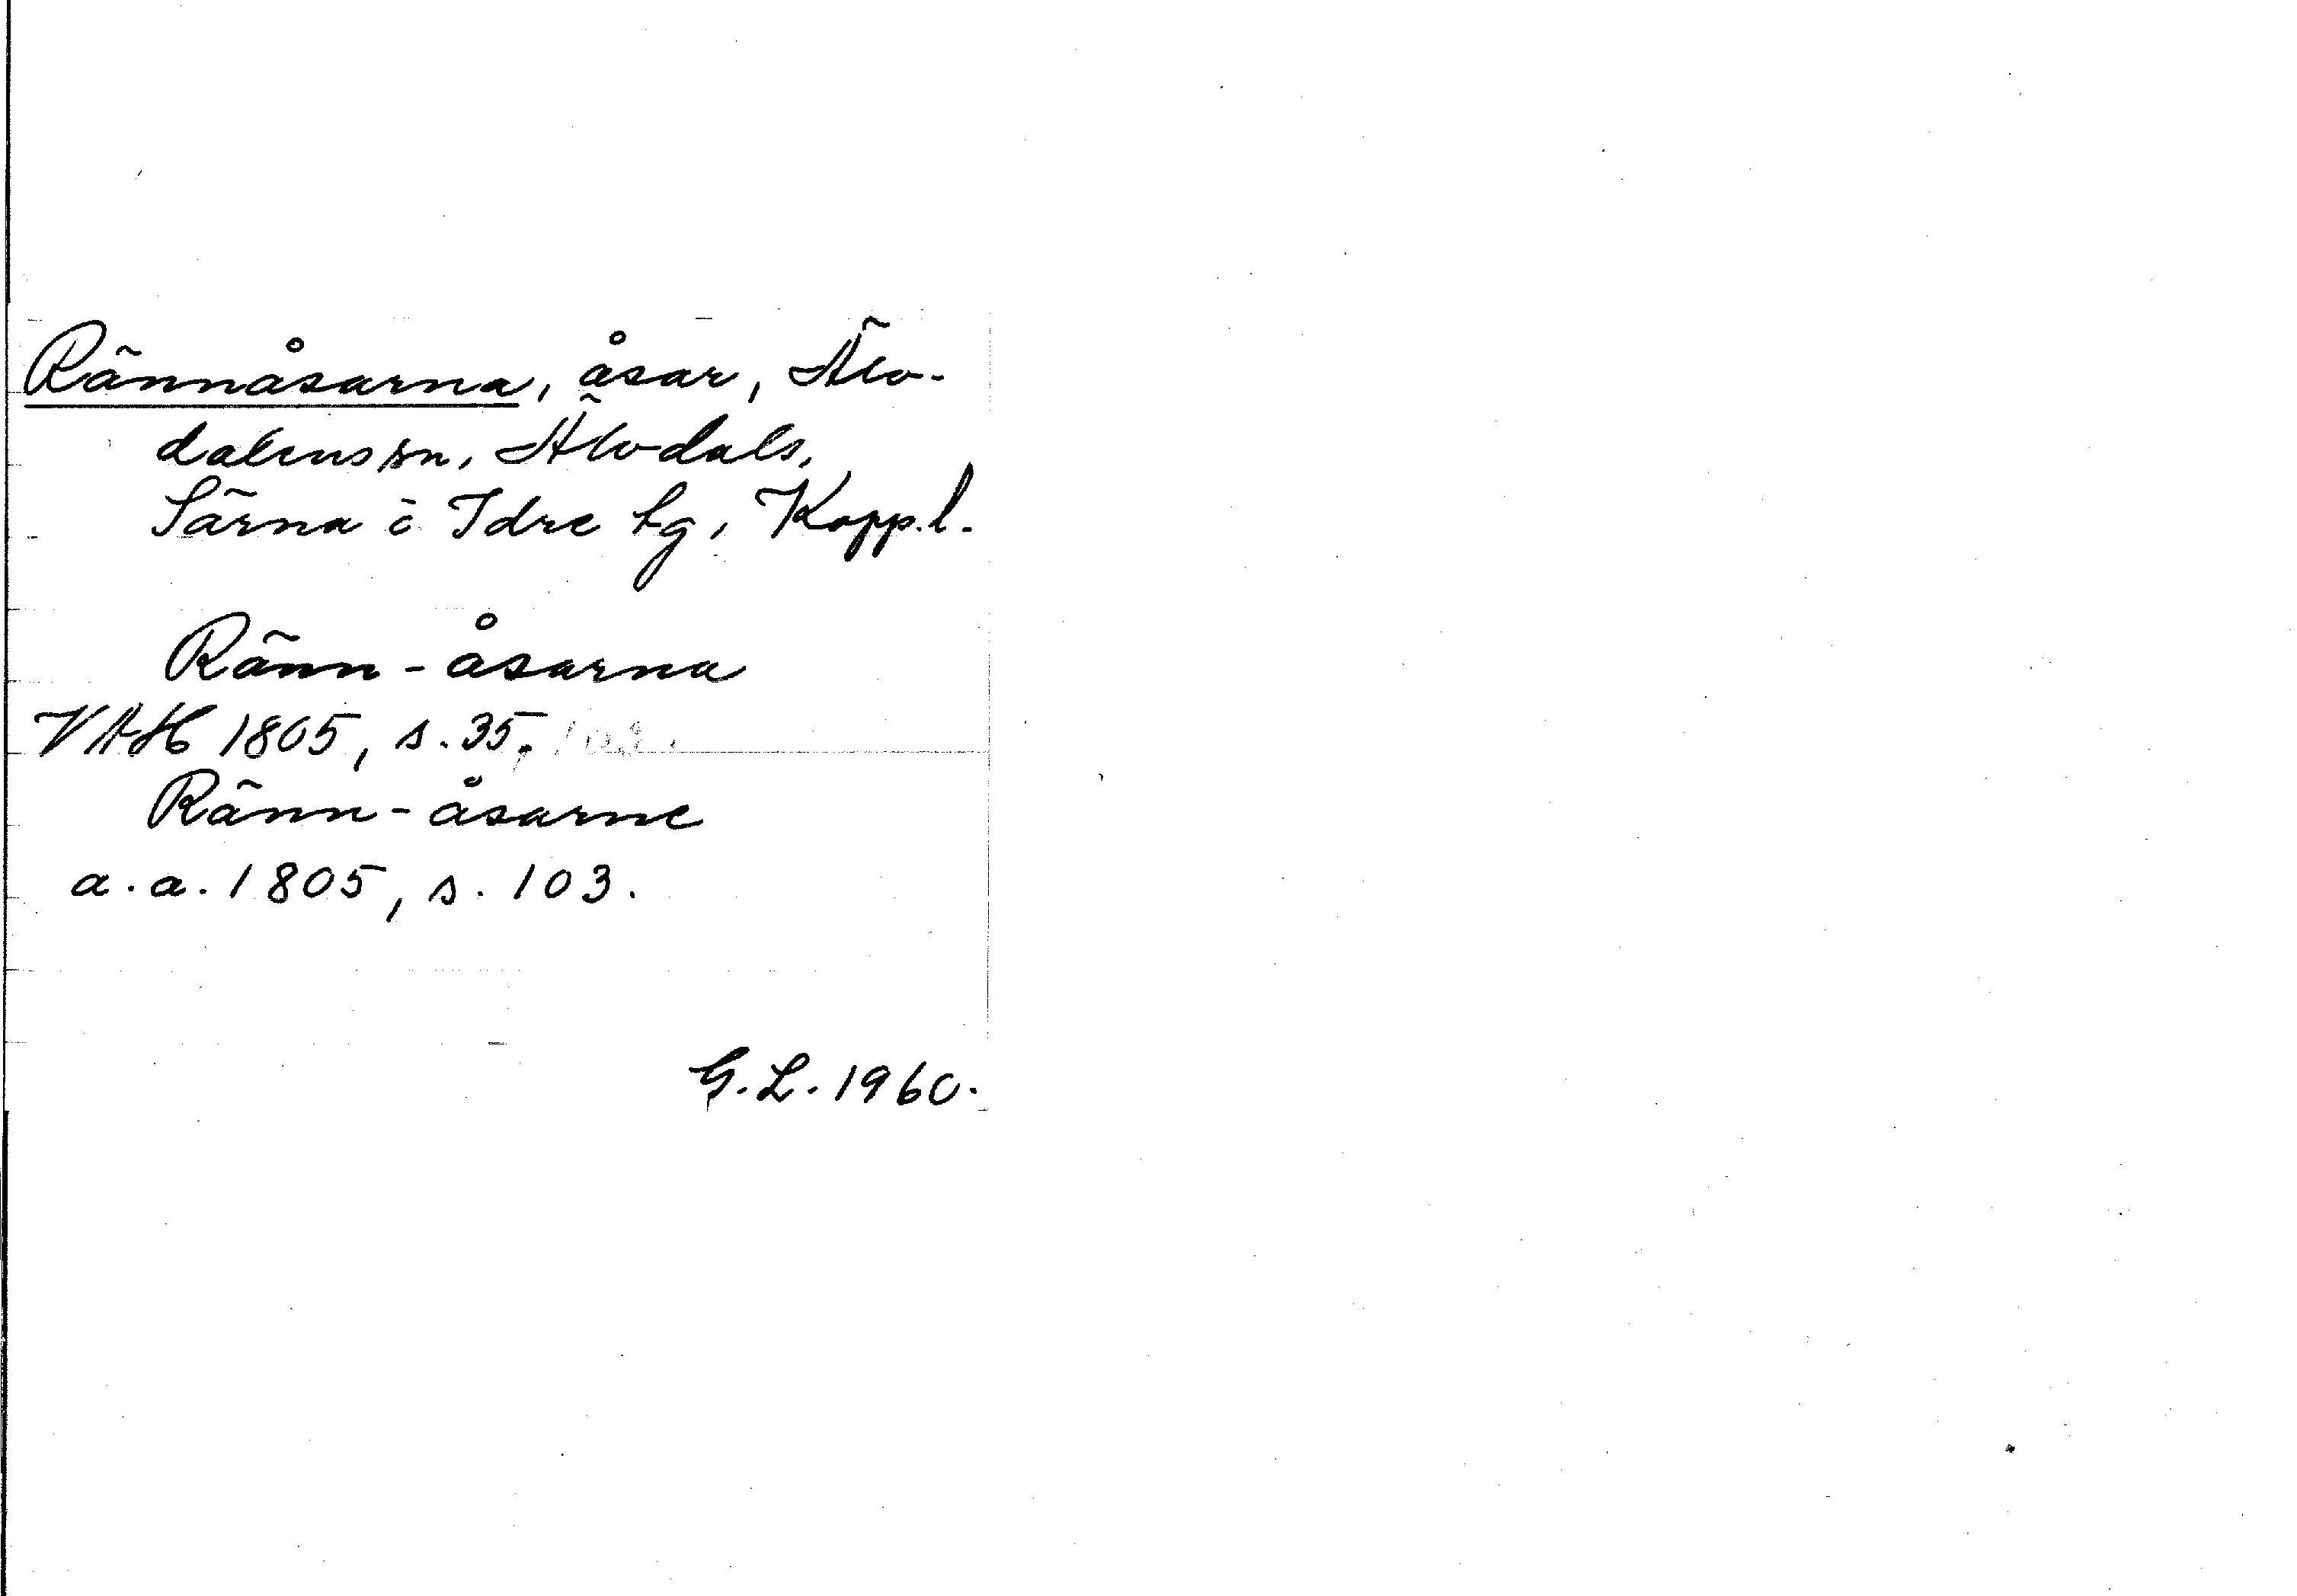 Rännåsarna, åsar, Älv-
dalens sn, Älvdals,
Särna o Idre tg, Kopp.l.
Ränn-åsarna
VAH 1805, s. 35.
Ränn-åsarne
a.a. 1805, s. 103.
G.L. 1960.